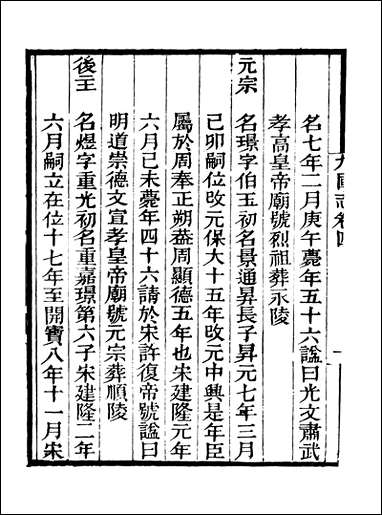 九國志卷四
一
名七年二月庚午薨年五十六謚曰光文肅武
孝高皇帝廟號烈祖葬永陵
元宗　名璟字伯玉初名景通昇長子昇元七年三月
己卯嗣位改元保大十五年改元中興是年臣
屬於周奉正朔葢周顯德五年也宋建隆元年
六月己未薨年四十六請於宋許復帝號謚曰
明道崇德文宣孝皇帝廟號元宗葬順陵
後主　名煜字重光初名重嘉璟第六子宋建隆二年
六月嗣立在位十七年至開寶八年十一月宋